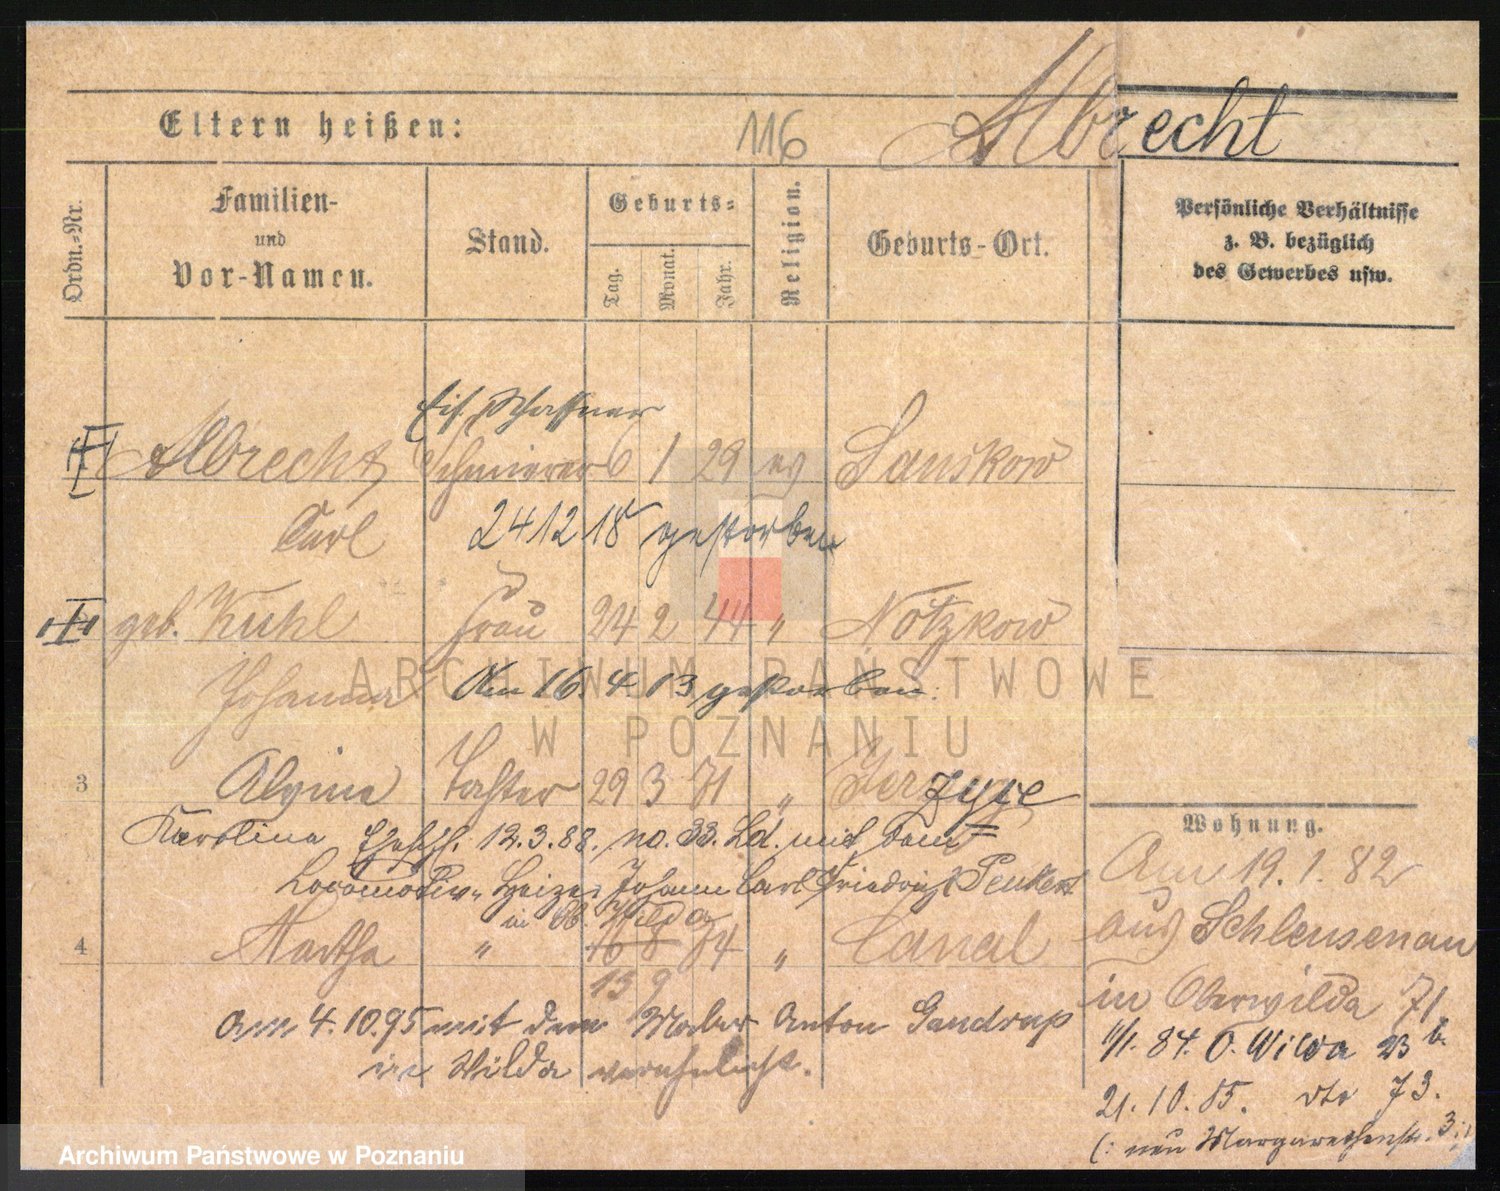 Eltern heißen:
116
Albrecht
Ordn.-Nr.
Familien-
und
Vor-Namen.
Stand.
Geburts-
Tag.
Monat.
Jahr.
Religion.
Geburts-Ort.
Persönliche Verhältnisse
z. B. bezüglich
des Gewerbes usw.
Eis. Schaffner
Albrecht Schmierer 6 1 29 ev Sauskow
Carl 24 12 18 gestorben
geb. Kuhl Frau 24 2 44 " Notzkow
Johanna Am 16. 4. 13 gestorben.
3 Alvine Tochter 29 3 71 " Jerzyce
Karoline Ehesch. 12.3.88. no. 33. Ld. mit dem
Locomotiv-Heizer Johann Carl Friedrich Penkert
in Ob. Wilda
4 Martha " 16 8 74 " Canal
13 9
Am 4.10.95 mit dem Maler Anton Gandrap
in Wilda verehelicht.
Wohnung.
Am 19. 1. 82
aus Schleusenau
in Oberwilda 71.
11/1. 84. O. Wilda 23 b.
21. 10. 85. dto 73.
(: neu Margarethenstr. 3 :)
ARCHIWUM PAŃSTWOWE
W POZNANIU
Archiwum Państwowe w Poznaniu